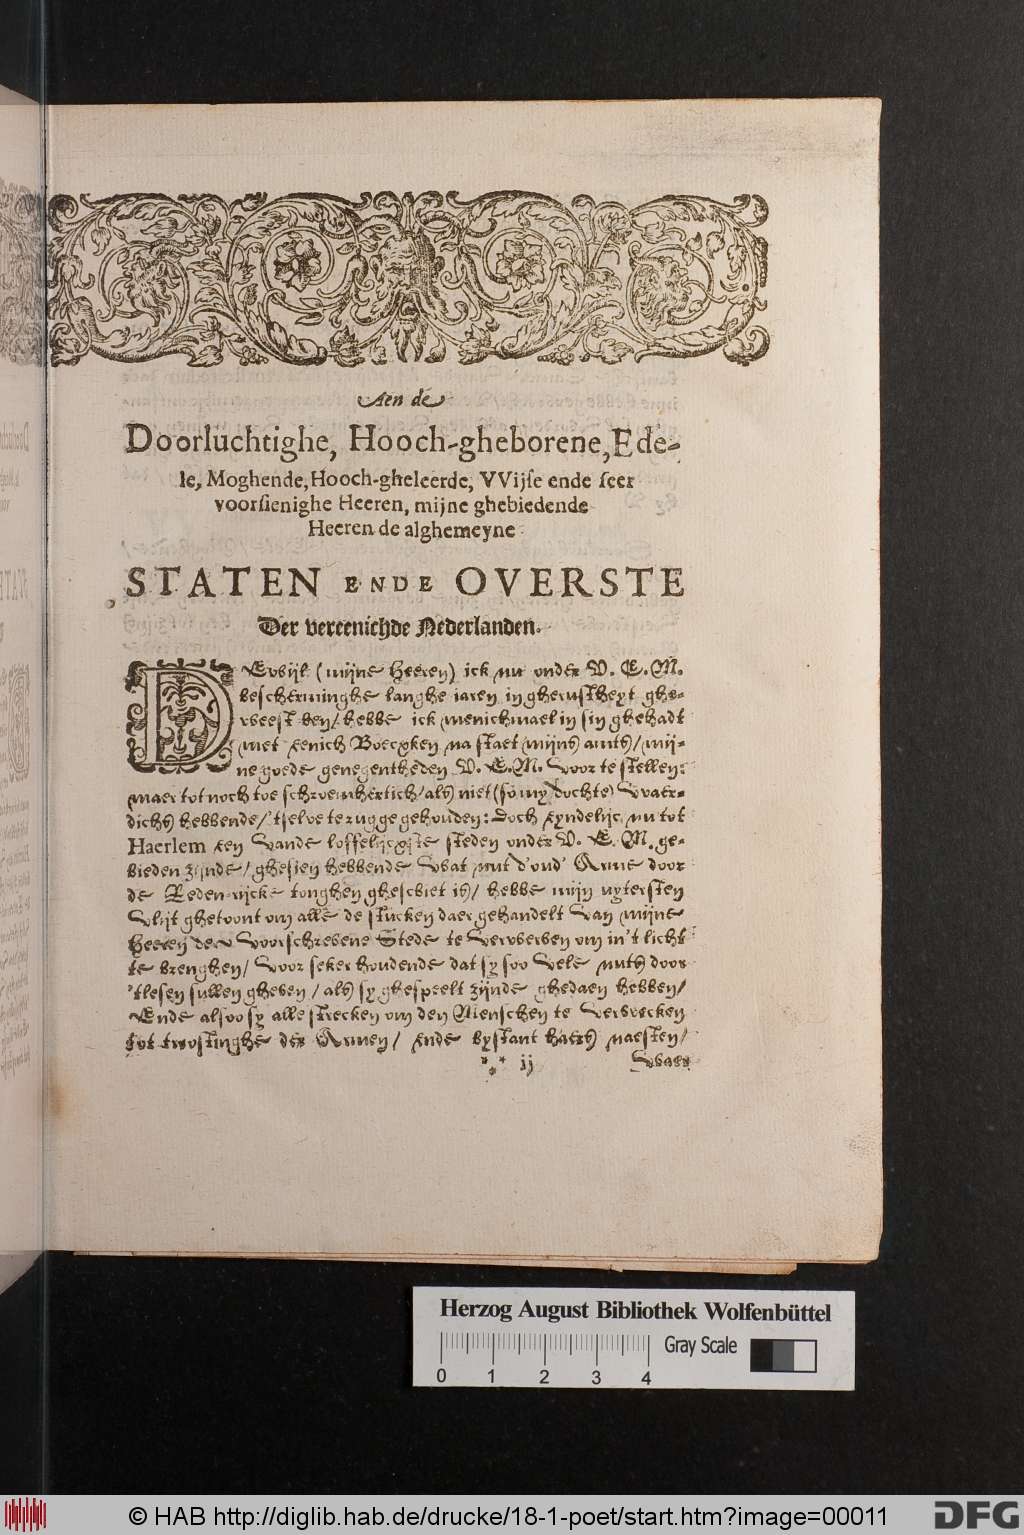 Aen de
Doorluchtighe, Hooch-gheborene, Ede-
le, Moghende, Hooch-gheleerde, VVijse ende seer
voorsienighe Heeren, mijne ghebiedende
Heeren de alghemeyne
STATEN ENDE OVERSTE
Der vereenichde Nederlanden.
DEwijl (mijne Heeren) ick nu onder V. E. M.
bescherminghe langhe iaren in gherustheyt ghe-
weest ben/ hebbe ick menichmael in sin ghehadt
met eenich Boecxken na staet mijns amts/ mij-
ne goede genegentheden V. E. M. voor te stellen:
maer tot noch toe schroemhertich/ als niet (so my dochte) waer-
dichs hebbende/ 'tselve te rugge gehouden: Doch eyndelijc nu tot
Haerlem een vande loffelijcxste steden onder V. E. M. ge-
bieden zijnde/ ghesien hebbende wat nut d'oud' Arme door
de Reden-rijcke tonghen gheschiet is/ hebbe mijn uytersten
vlijt ghetoont om alle de stucken daer gehandelt van mijne
Heeren der voorschrevene Stede te verwerven om in't licht
te brenghen/ voor seker houdende dat sy soo vele nuts door
'tlesen sullen gheven/ als sy ghespeelt zijnde ghedaen hebben/
Ende alsoo sy alle strecken om den Menschen te verwecken
tot troostinghe der Armen/ ende bystant haers naesten/
*** ij
waer
Herzog August Bibliothek Wolfenbüttel
0 1 2 3 4
Gray Scale
© HAB http://diglib.hab.de/drucke/18-1-poet/start.htm?image=00011
DFG